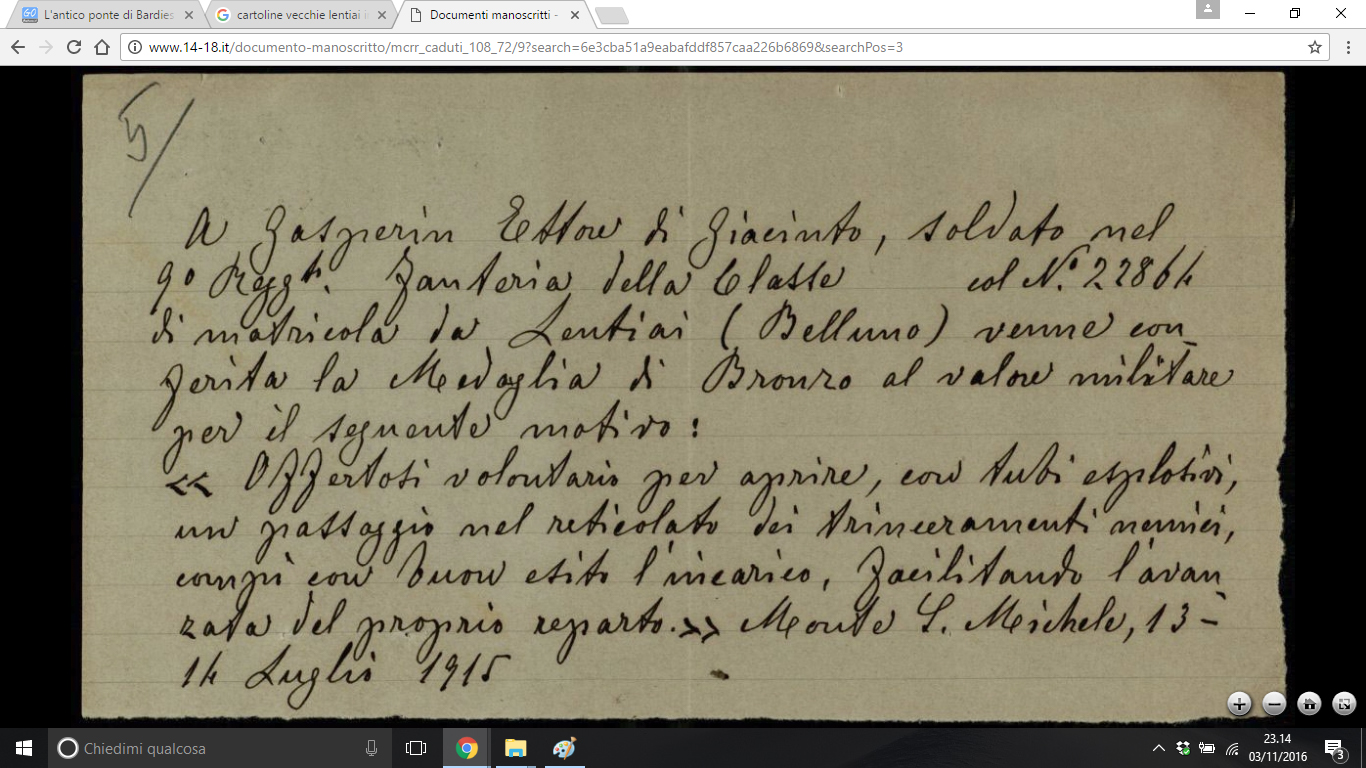 L'antico ponte di Bardies
cartoline vecchie lentiai i
Documenti manoscritti -
www.14-18.it/documento-manoscritto/mcrr_caduti_108_72/9?search=6e3cba51a9eabafddf857caa226b6869&searchPos=3
5/
A Gasperin Ettore di Giacinto, soldato nel
9º Reggto. Fanteria della Classe col Nº. 22864
di matricola da Lentiai (Belluno) venne con_
ferita la Medaglia di Bronzo al valore militare
per il seguente motivo:
<< Offertosi volontario per aprire, con tubi esplosivi,
un passaggio nel reticolato dei trinceramenti nemici,
compì con buon esito l'incarico, facilitando l'avan
zata del proprio reparto.>> Monte S. Michele, 13-
14 Luglio 1915
Chiedimi qualcosa
23.14
03/11/2016
3